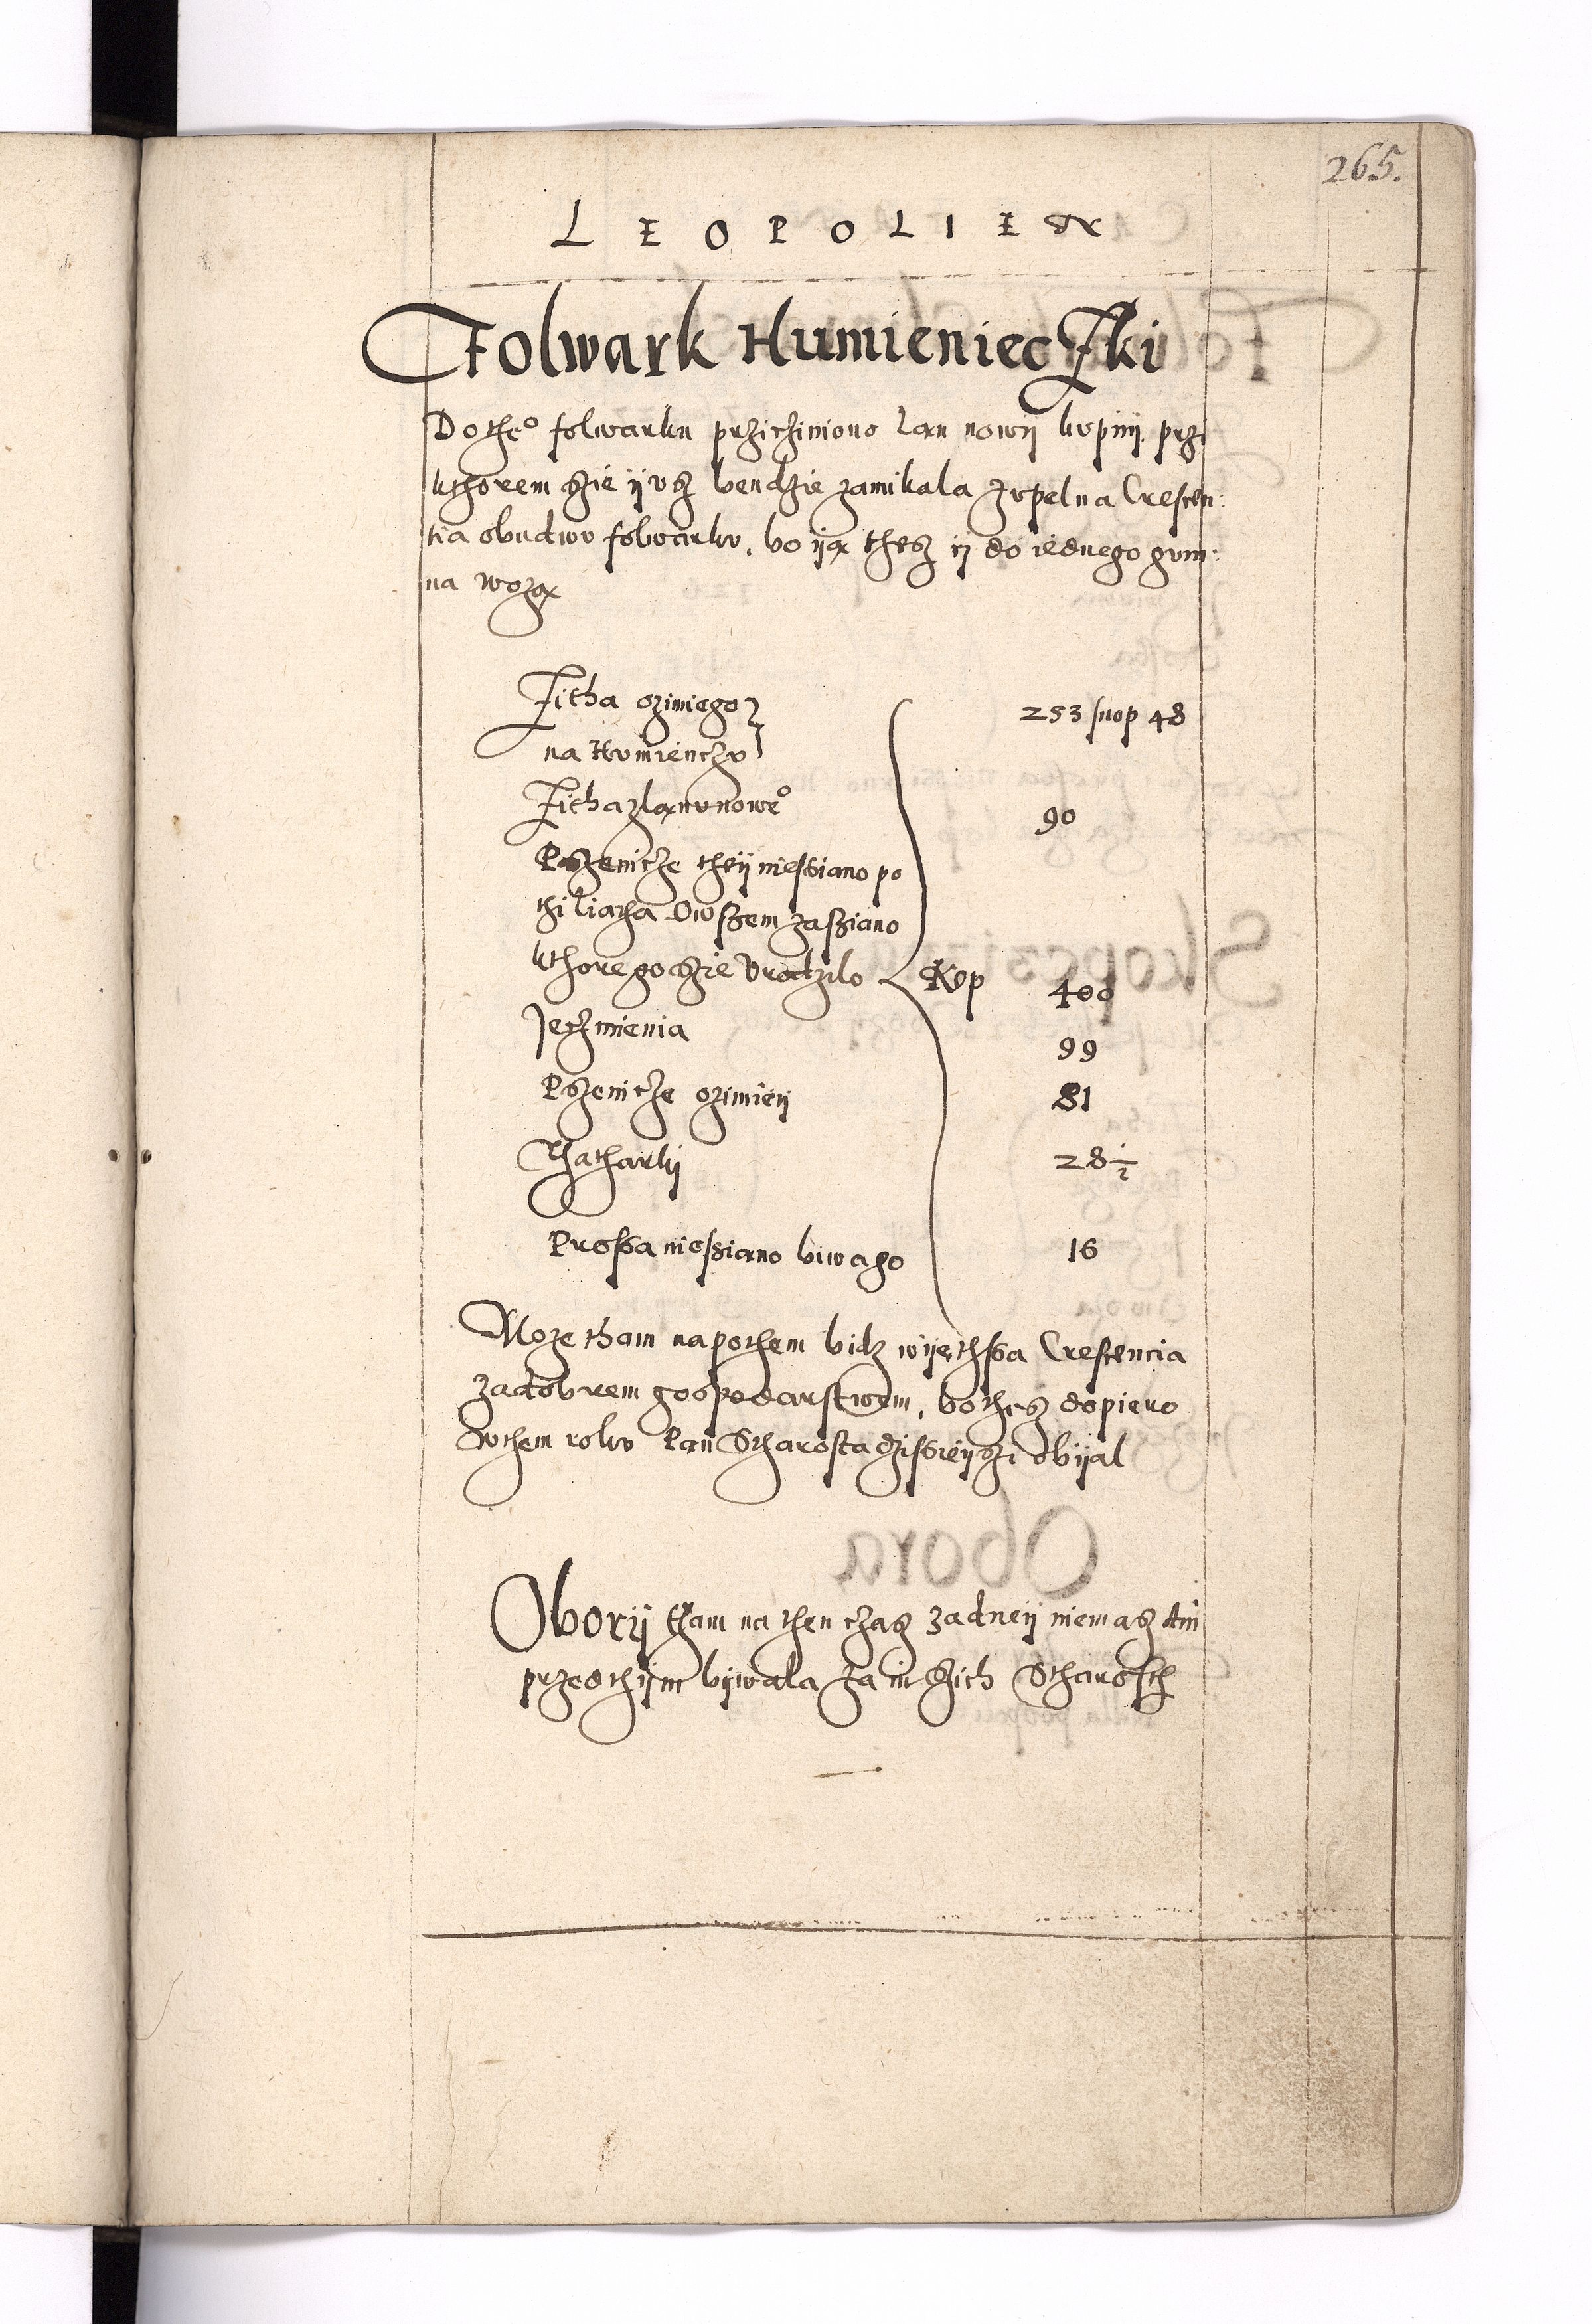 265.
LEOPOLIEN
Folwark Humienieczki
Do the° folwarku przicziniono lan nowy kupny, przi
kthorem szie yusz bendzie zamikala zupelna Crescen:
tia obudwu folwarku, bo yą thesz y do iednego gum:
na wozą
Zitha ozimiego
na Humienczu 253 snop 48
Zitha z lanu nowe° 90
Pszenicze they niesiano po
thi liatha Owszem zasziano
kthorego szie urodzilo Kop 400
Jeczmienia 99
Pszenicze ozimiey 81
Thatharky 28 1/2
Prossa niesziano biwa go 16
Moze tham napothem bidz wyethssa Crescencia
za dobrem gospodarstwem, bo thesz dopiero
w them roku Pan Scharosta dzissieyszi obyal
Obory tham na then czasz zadney niemasz Ani
przedthym bywala za inszich Scharosth